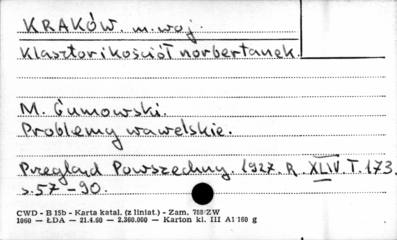 KRAKÓW. m. woj.
Klasztor i kościół norbertanek.
M. Gumowski.
Problemy wawelskie.
Przegląd Powszechny. 1927. R. XLIV. T. 173.
s. 57-90.
CWD - B 15b - Karta katal. (z liniat.) - Zam. 788/ZW
1060 — ŁDA — 21.4.60 — 2.360.000 — Karton kl. III A1 160 g